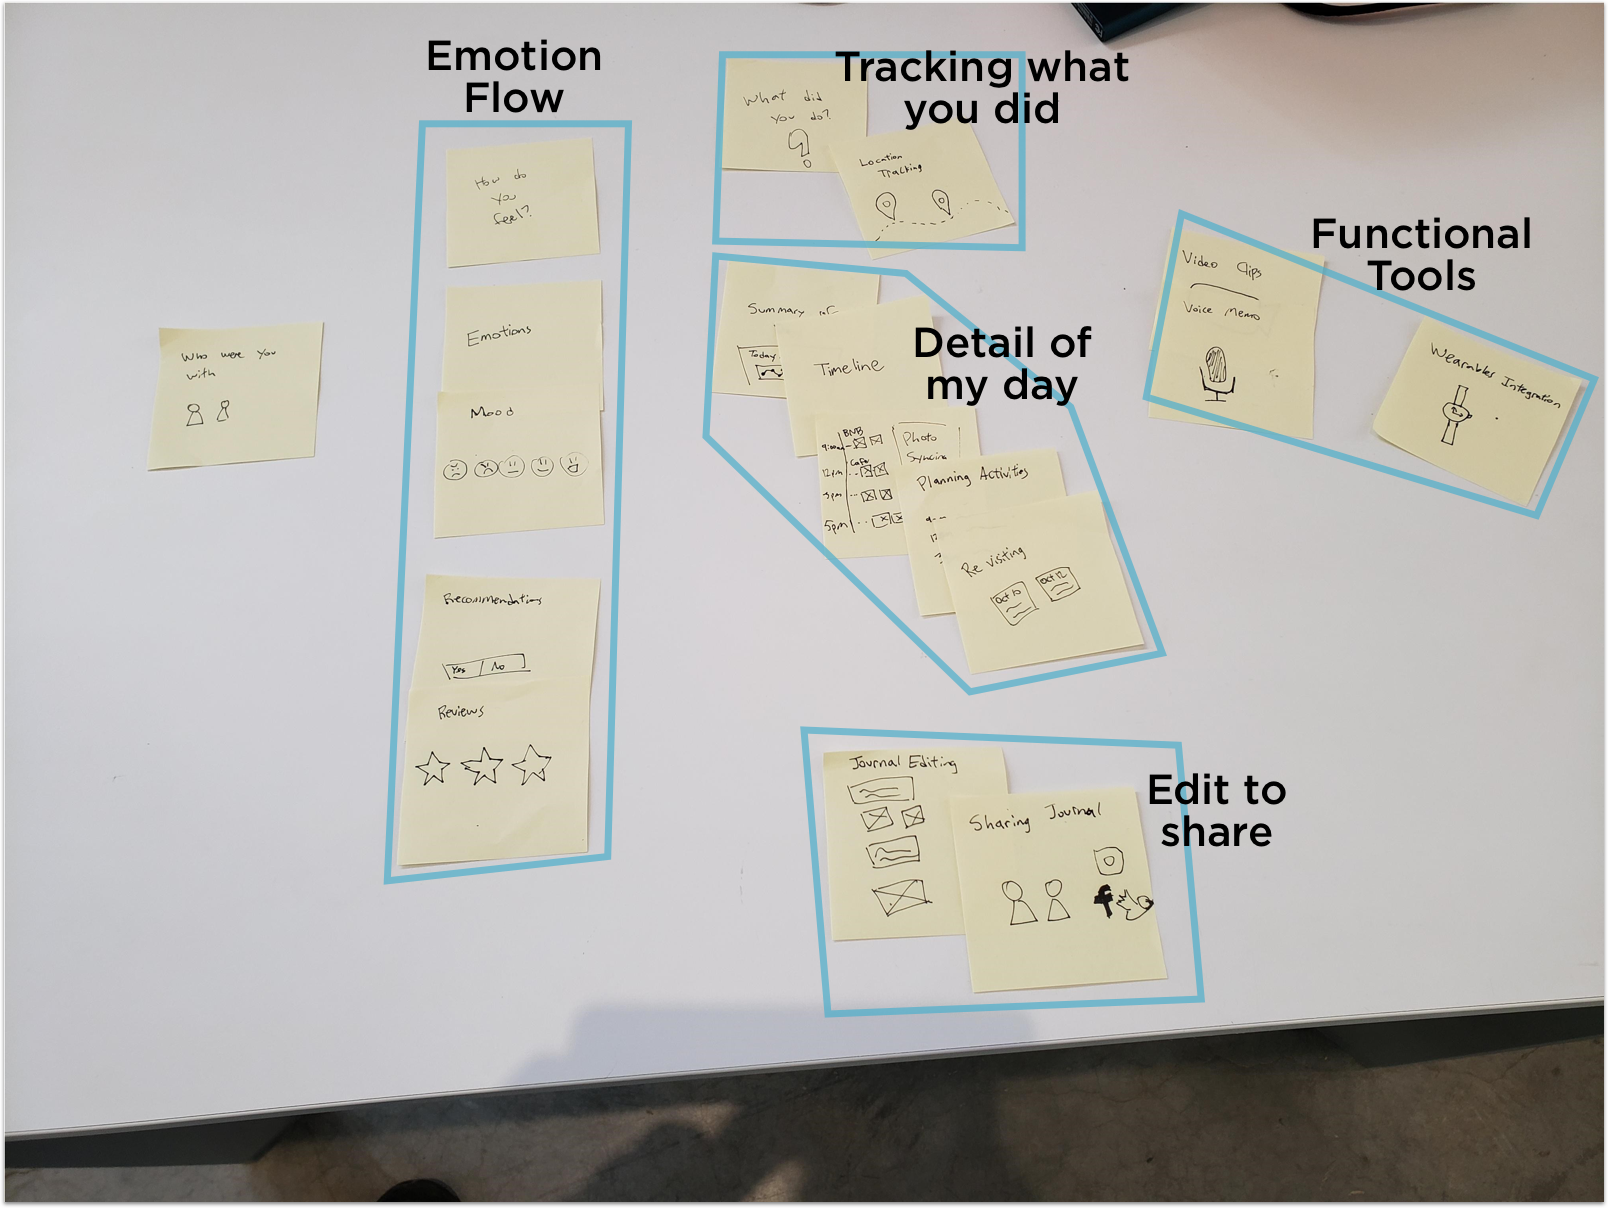 Emotion
Flow
How do
you
feel?
Emotions
Mood
Recommendations
Yes No
Reviews
Who were you
with
Tracking what
you did
What did
you do?
Location
Tracking
Detail of
my day
Summary of
Today
Timeline
BNB
9:00am
Cafe
12pm
3pm
5pm
Photo
Syncing
Planning Activities
9--
12
3
Re visiting
Oct 10
Oct 12
Functional
Tools
Video Clips
Voice Memo
Wearables Integration
Edit to
share
Journal Editing
Sharing Journal
f